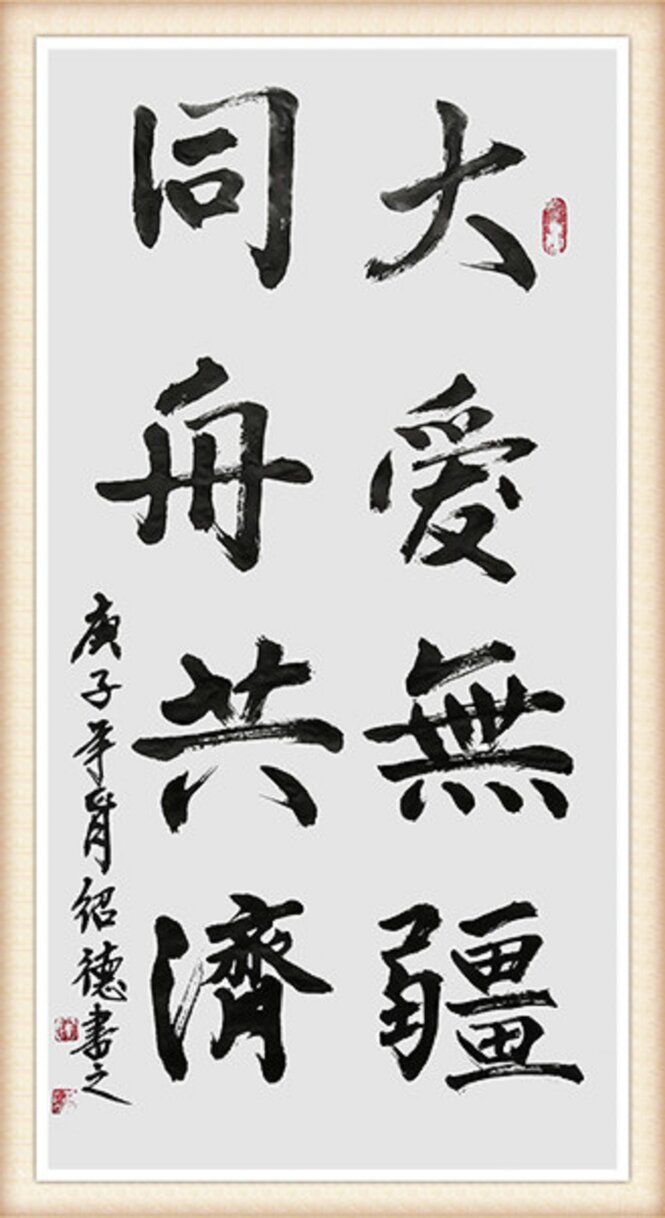 大愛無疆
同舟共濟
庚子年月紹德書之